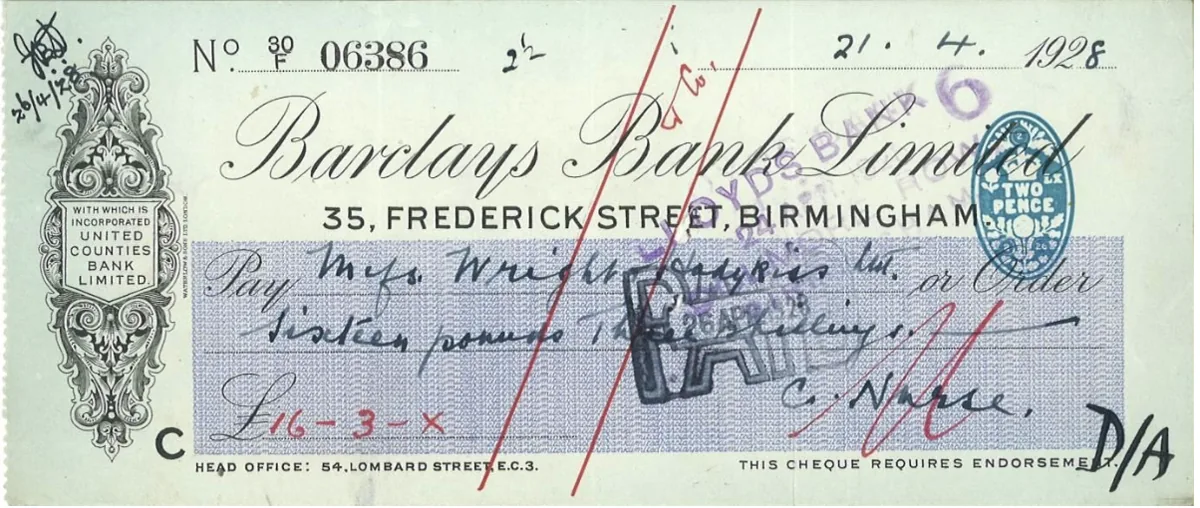 26/4/28
Nº 30/F 06386
21. 4. 1928
& Co.
Barclays Bank Limited
35, FREDERICK STREET, BIRMINGHAM
LLOYDS BANK 6
TWO
PENCE
WITH WHICH IS
INCORPORATED
UNITED
COUNTIES
BANK
LIMITED.
Pay Messrs. Wright Hodgkiss Ltd. or Order
Sixteen pounds Three shillings.
PAID
26 APR 1928
£16-3-X
C. Nurse.
C
D/A
HEAD OFFICE: 54, LOMBARD STREET, E.C.3.
THIS CHEQUE REQUIRES ENDORSEMENT.